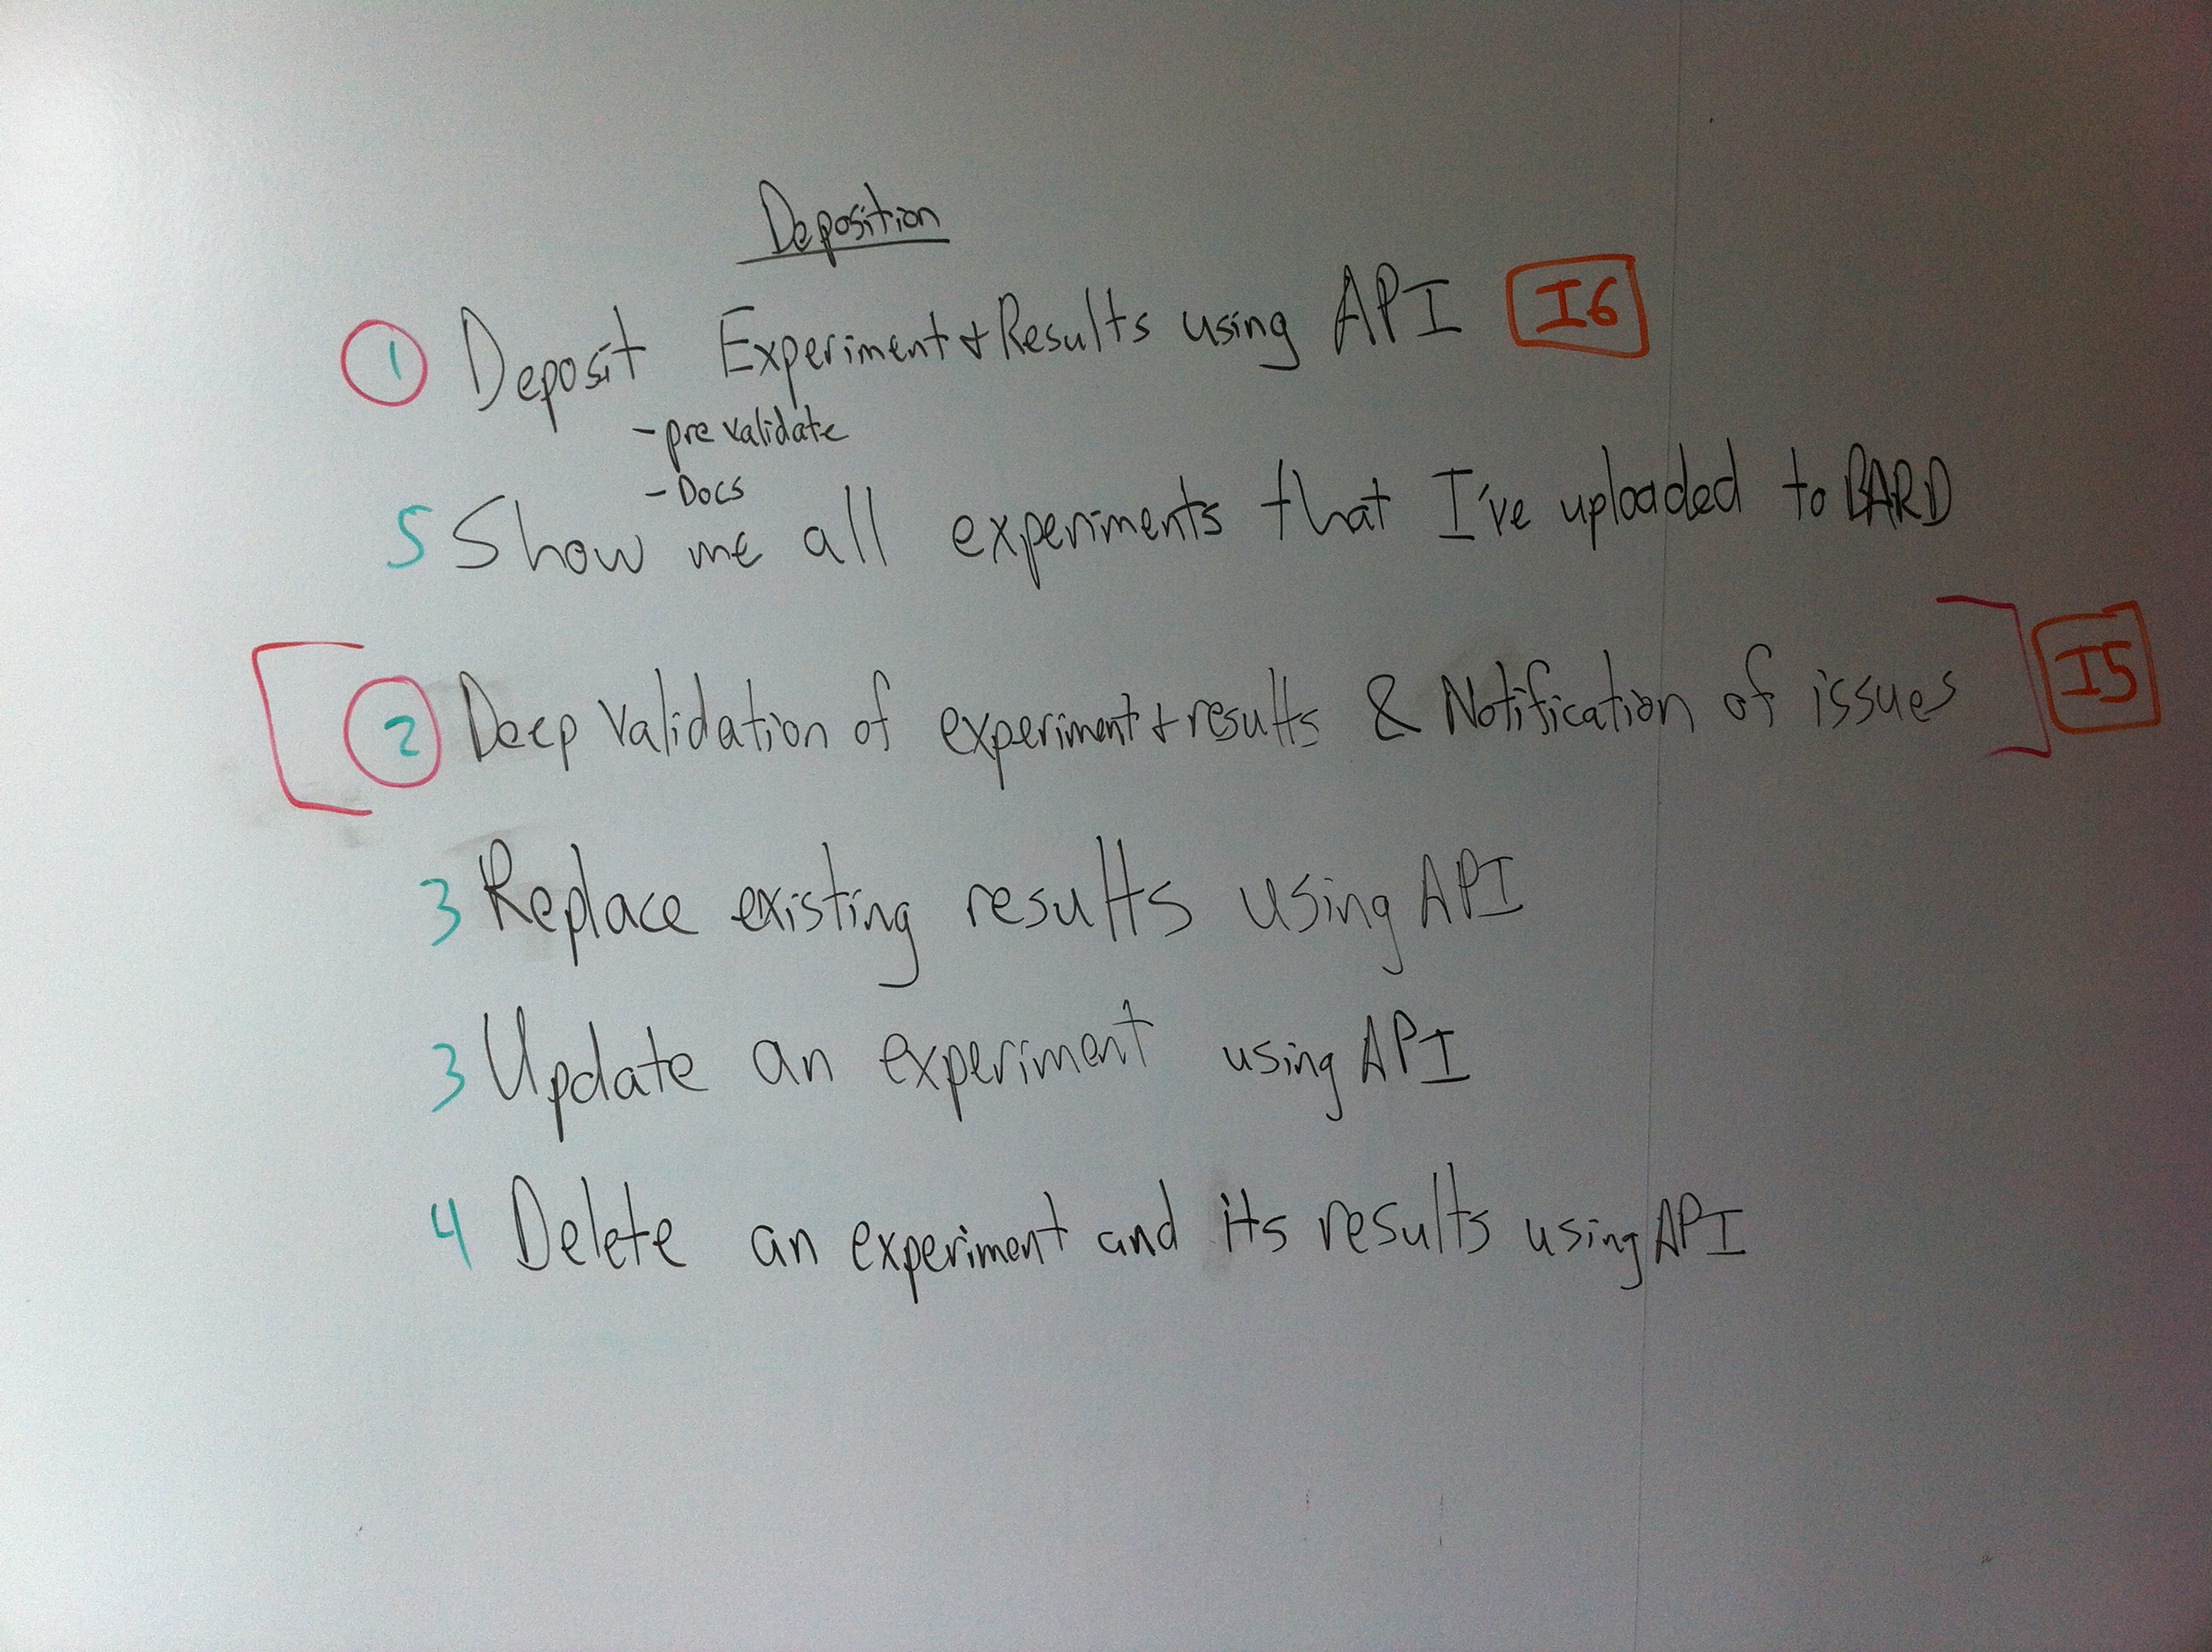 Deposition
1 Deposit Experiment + Results using API I6
- pre validate
- Docs
5 Show me all experiments that I've uploaded to BARD
[2 Deep Validation of experiment + results & Notification of issues] I5
3 Replace existing results using API
3 Update an experiment using API
4 Delete an experiment and its results using API